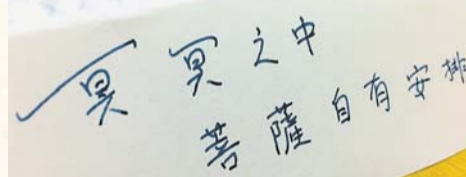 冥冥之中
菩薩自有安排